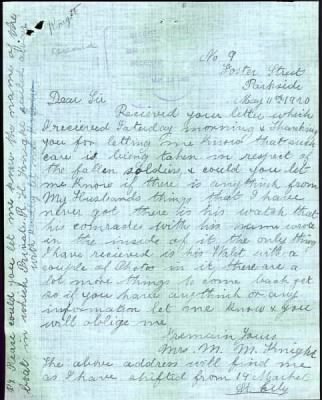 No 9
Foster Street
Parkside
May 11th 1920
Dear Sir
Recieved your letter which
I recieved Saterday morning & Thanking
you for letting me know that such
care is being taken in respect of
the fallen soldiers & could you let
me know if there is anythink from
My Husbands things that I have
never got there is his watch that
his comrades with his name wrote
in the inside of it the only thing
I have recieved is his Wallet with a
couple of Photos in it there are a
lot more things to come back yet
so if you have anythink or any
information let me know & you
will oblige me
I remain Yours
Mrs. M. M. Knight
The above address will find me
as I have shifted from 19 Market
St City
PS Please could you let me know the name of the
boat in which Private R. H. Knight sailed
Knight